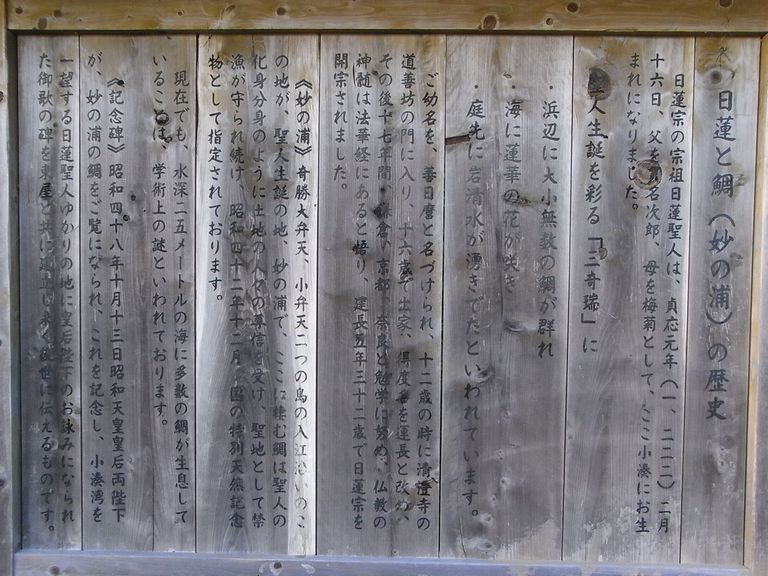 日蓮と鯛（妙の浦）の歴史
日蓮宗の宗祖日蓮聖人は、貞応元年（一、二二二）二月
十六日、父を貫名次郎、母を梅菊として、ここ小湊にお生
まれになりました。
聖人生誕を彩る「三奇瑞」に
・浜辺に大小無数の鯛が群れ
・海に蓮華の花が咲き
・庭先に岩清水が湧きでたといわれています。
ご幼名を、善日麿と名づけられ、十二歳の時に清澄寺の
道善坊の門に入り、十六歳で出家、得度 を蓮長と改め、
その後十七年間・鎌倉、京都、奈良と勉学に努め、仏教の
神髄は法華経にあると悟り、建長五年三十二歳で日蓮宗を
開宗されました。
《妙の浦》奇勝大弁天、小弁天二つの島の入江沿いのこ
の地が、聖人生誕の地、妙の浦で、ここに棲む鯛は聖人の
化身分身のように土地の人々の尊信を受け、聖地として禁
漁が守られ続け、昭和四十二年十二月、国の特別天然記念
物として指定されております。
現在でも、水深二五メートルの海に多数の鯛が生息して
いることは、学術上の謎といわれております。
《記念碑》昭和四十八年十月十三日昭和天皇皇后両陛下
が、妙の浦の鯛をご覧になられ、これを記念し、小湊湾を
一望する日蓮聖人ゆかりの地に皇后陛下のお詠みになられ
た御歌の碑を東屋と共に建立し永く後世に伝えるものです。